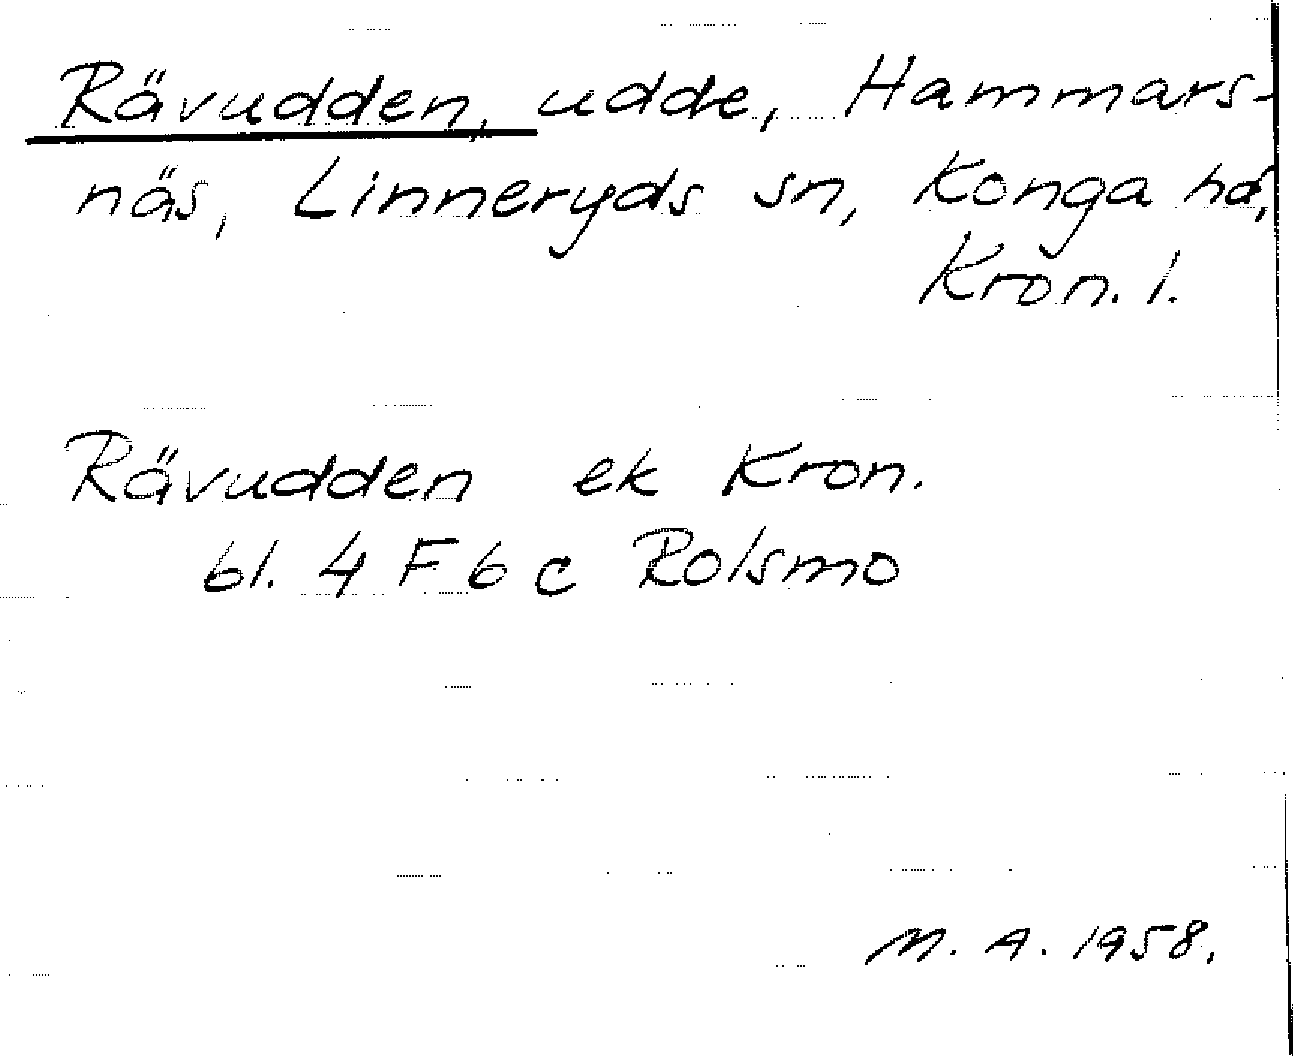 Rävudden, udde, Hammars-
näs, Linneryds sn, Konga hd,
Kron. l.
Rävudden ek Kron.
bl. 4 F 6 c Rolsmo
M. A. 1958.